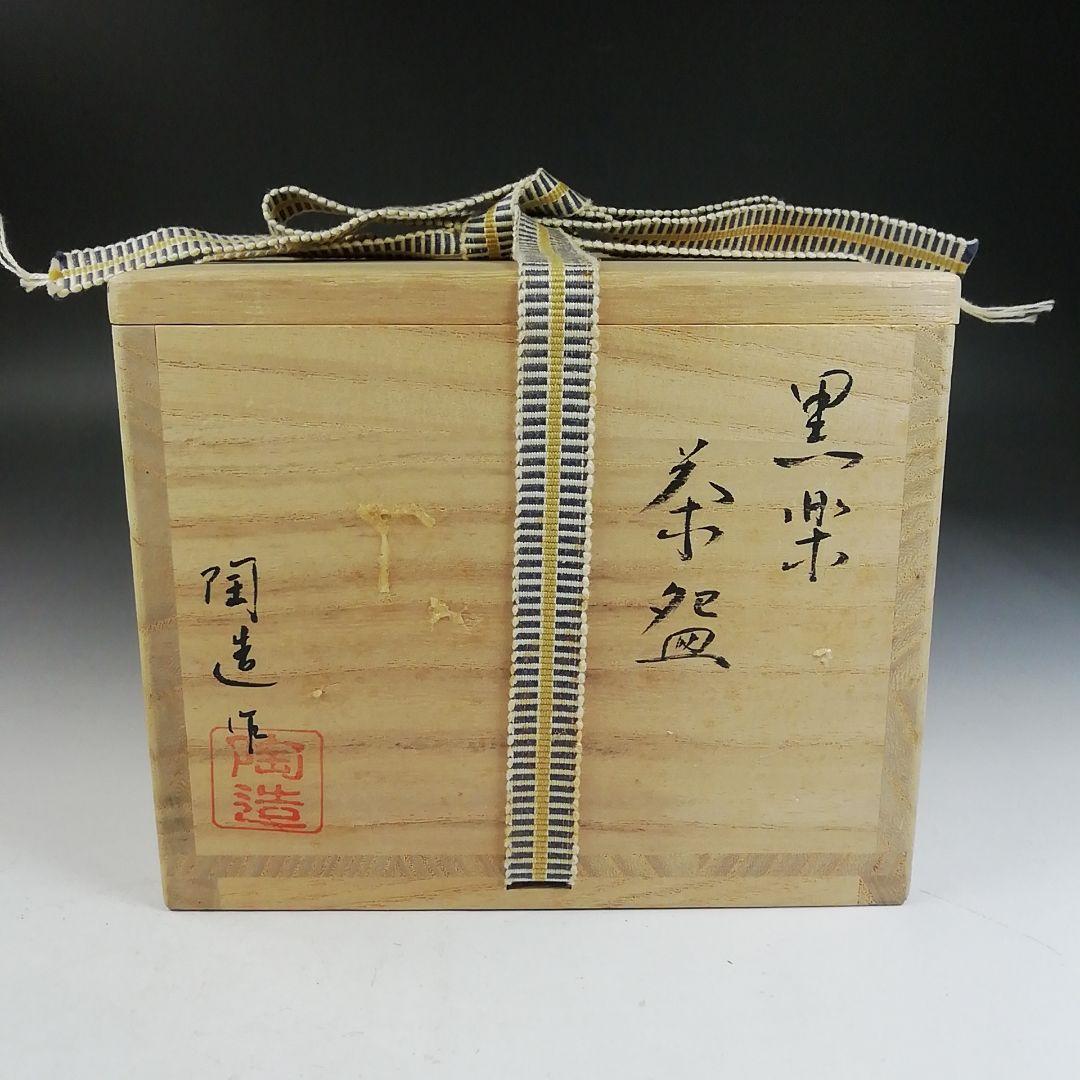 黒楽
茶盌
陶造作
陶造